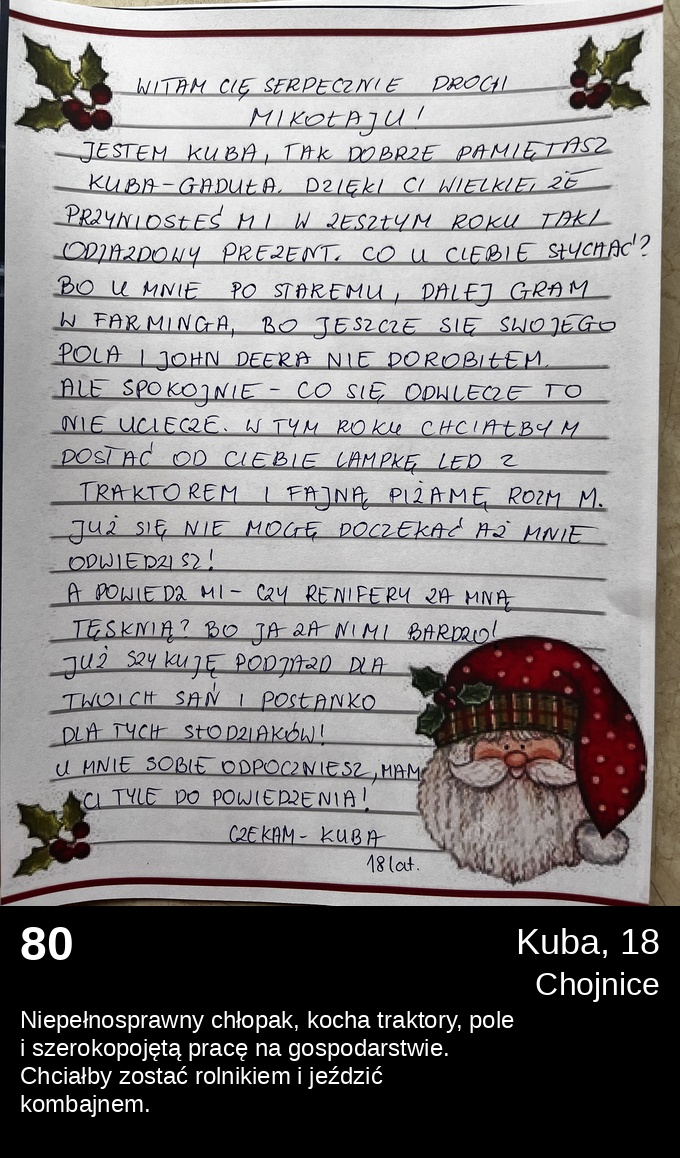 WITAM CIĘ SERPECZNIE DROGI
MIKOŁAJU!
JESTEM KUBA, TAK DOBRZE PAMIĘTASZ
KUBA-GADUŁA. DZIĘKI CI WIELKIE, ŻE
PRZYNIOSŁEŚ MI W ZESZŁYM ROKU TAKI
ODJAZDOWY PREZENT. CO U CIEBIE SŁYCHAĆ?
BO U MNIE PO STAREMU, DALEJ GRAM
W FARMINGA, BO JESZCZE SIĘ SWOJEGO
POLA I JOHN DEERA NIE DOROBIŁEM.
ALE SPOKOJNIE - CO SIĘ ODWLECZE TO
NIE UCIECZE. W TYM ROKU CHCIAŁBYM
DOSTAĆ OD CIEBIE LAMPKĘ LED Z
TRAKTOREM I FAJNĄ PIŻAMĘ ROZM M.
JUŻ SIĘ NIE MOGĘ DOCZEKAĆ AŻ MNIE
ODWIEDZISZ!
A POWIEDZ MI - CZY RENIFERY ZA MNĄ
TĘSKNIĄ? BO JA ZA NIMI BARDZO!
JUŻ SZYKUJĘ PODJAZD DLA
TWOICH SAŃ I POSŁANKO
DLA TYCH SŁODZIAKÓW!
U MNIE SOBIE ODPOCZNIESZ, MAM
CI TYLE DO POWIEDZENIA!
CZEKAM - KUBA
18 lat.
80
Kuba, 18
Chojnice
Niepełnosprawny chłopak, kocha traktory, pole
i szerokopojętą pracę na gospodarstwie.
Chciałby zostać rolnikiem i jeździć
kombajnem.